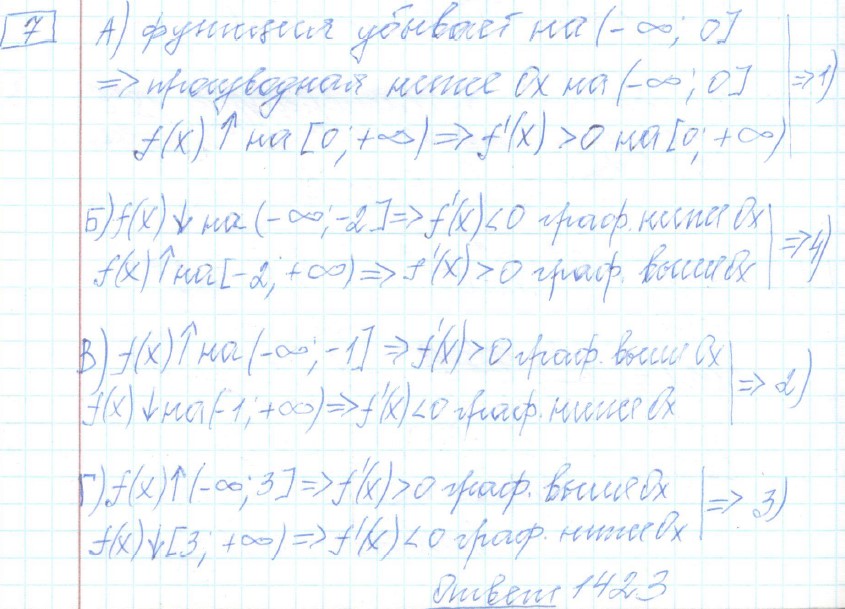 7 А) функция убывает на (-∞; 0]
=> производная ниже Ox на (-∞; 0] => 1)
f(x) ↑ на [0; +∞) => f'(x) > 0 на [0; +∞)
Б) f(x) ↓ на (-∞; -2] => f'(x) < 0 граф. ниже Ox => 4)
f(x) ↑ на [-2; +∞) => f'(x) > 0 граф. выше Ox
В) f(x) ↑ на (-∞; -1] => f'(x) > 0 граф. выше Ox => 2)
f(x) ↓ на (-1; +∞) => f'(x) < 0 граф. ниже Ox
Г) f(x) ↑ (-∞; 3] => f'(x) > 0 граф. выше Ox => 3)
f(x) ↓ [3; +∞) => f'(x) < 0 граф. ниже Ox
Ответ 1423